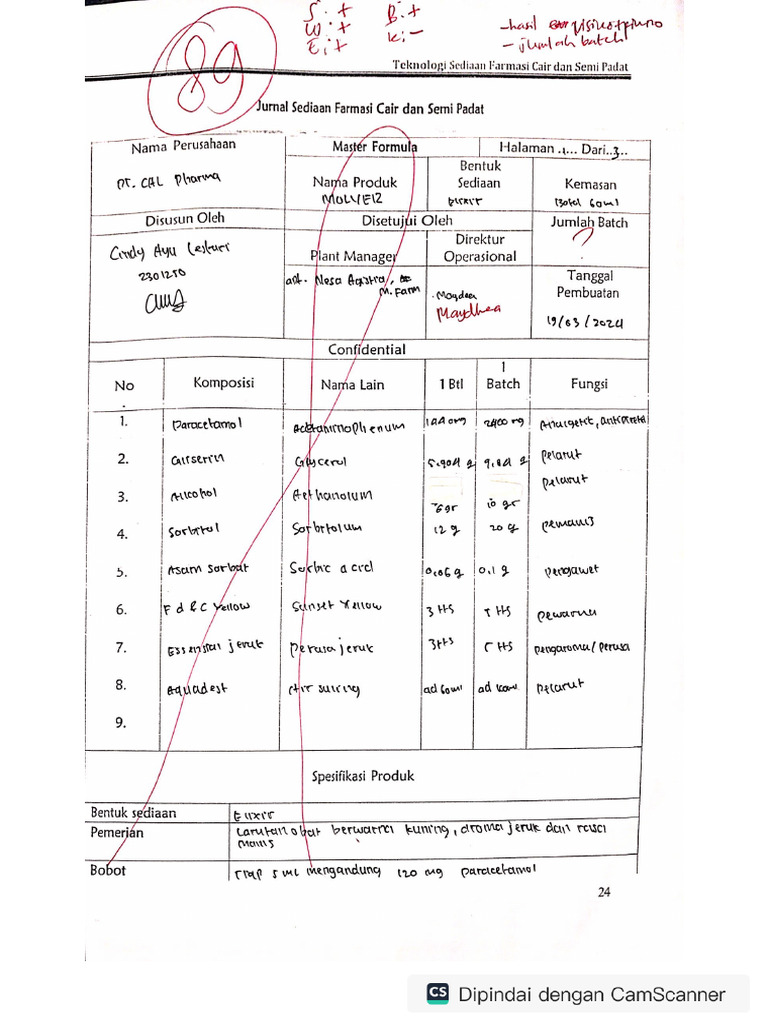 S : +
B : +
W : +
K : -
E : +
- hasil
- jumlah batch
89
Teknologi Sediaan Farmasi Cair dan Semi Padat
Jurnal Sediaan Farmasi Cair dan Semi Padat
Nama Perusahaan
Master Formula
Halaman .1... Dari..3..
PT. CAL Pharma
Nama Produk
Bentuk Sediaan
Kemasan
Elixir
Botol 60 ml
Disusun Oleh
Disetujui Oleh
Jumlah Batch
?
Cindy Ayu Lestari
2301250
Plant Manager
Direktur Operasional
Tanggal Pembuatan
apt. Nesa Agistia, M. Farm
Maydhea
19/03/2024
Confidential
No Komposisi Nama Lain 1 Btl 1 Batch Fungsi
1. Paracetamol 2400 mg
2. Glycerol Pelarut
3. Alcohol Aethanolum 10 gr Pelarut
4. Sorbitol 12 g 20 g Pemanis
5. Asam sorbat 0,06 g 0,1 g Pengawet
6. F d & C Yellow Sunset Yellow 3 tts Pewarna
7. Essensial jeruk Perasa jeruk 3 tts Pengaroma/Perasa
8. Aquadest Air suling ad 60 ml ad 100 ml Pelarut
9.
Spesifikasi Produk
Bentuk sediaan Elixir
Pemerian Larutan obat berwarna kuning, aroma jeruk dan rasa manis
Bobot Tiap 5 ml mengandung 120 mg paracetamol
24
CS Dipindai dengan CamScanner